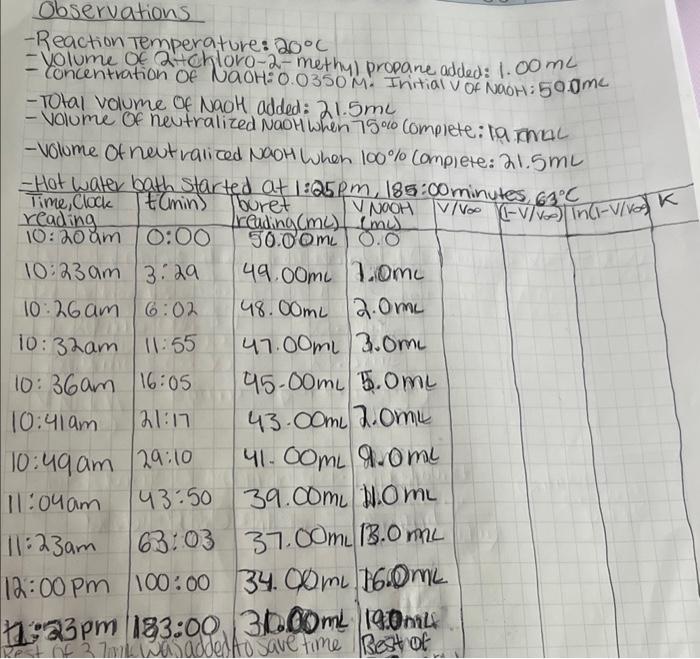 Observations
-Reaction Temperature: 20°C
-Volume of 2-chloro-2-methyl propane added: 1.00mL
-Concentration of NaOH: 0.0350M. Initial V of NaOH: 50.0mL
-Total volume of NaOH added: 21.5mL
-Volume of neutralized NaOH when 75% complete:
-Volume of neutralized NaOH when 100% complete: 21.5mL
-Hot water bath started at 1:25pm, 185:00minutes, 63°C
Time, Clock reading t(min) buret reading(mL) V NaOH (mL) V/V∞ (1-V/V∞) ln(1-V/V∞) K
10:20am 0:00 50.00mL 0.0
10:23am 3:29 49.00mL 1.0mL
10:26am 6:02 48.00mL 2.0mL
10:32am 11:55 47.00mL 3.0mL
10:36am 16:05 45.00mL 5.0mL
10:41am 21:17 43.00mL 7.0mL
10:49am 29:10 41.00mL 9.0mL
11:04am 43:50 39.00mL 11.0mL
11:23am 63:03 37.00mL 13.0mL
12:00pm 100:00 34.00mL 16.0mL
1:23pm 183:00 31.00mL 19.0mL
Rest of was added to save time Rest of